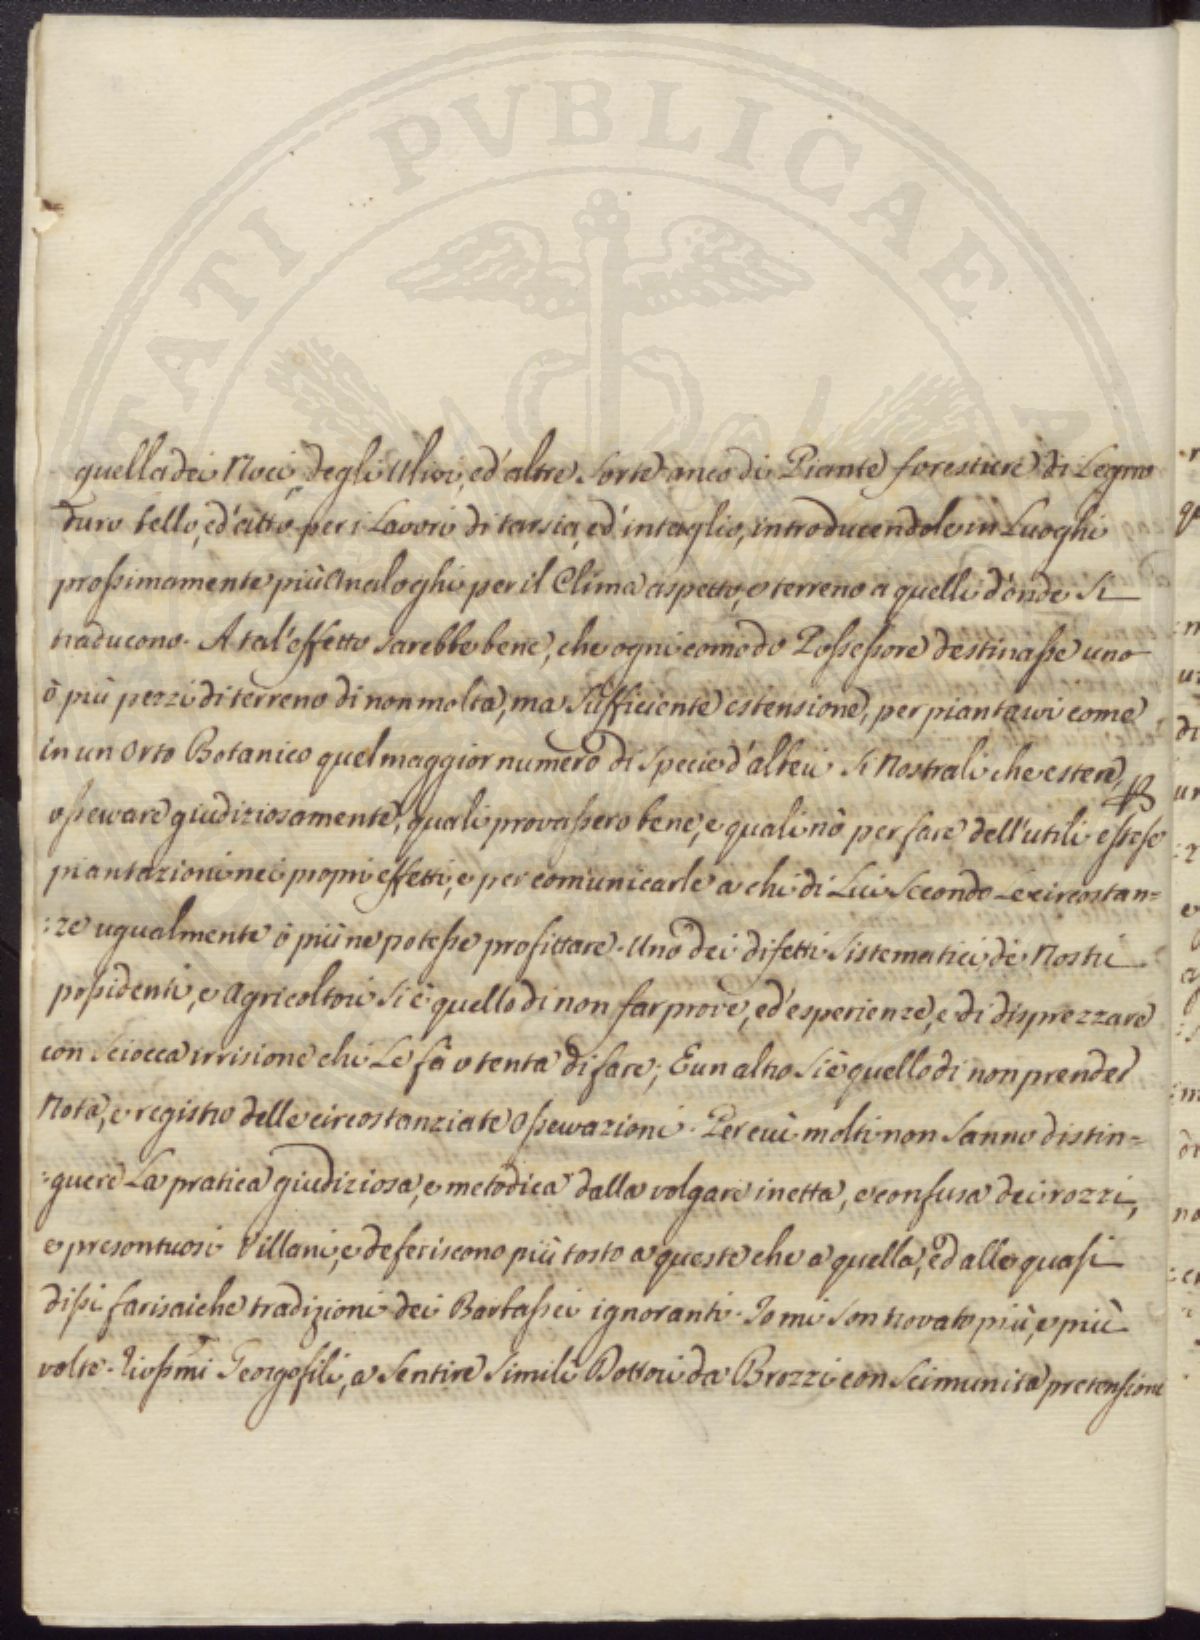 PROSPERITATI PVBLICAE A
quella dei Noci degli Ulivi, ed'altre Sorte anco di Piante forestiere di Legno
duro bello, ed'atto per i Lavori di tarsia, ed'intaglio, introducendole in Luoghi
prossimamente più Analoghi per il Clima aspetto, e terreno a quelli d'onde Si
traducono. A tal'effetto sarebbe bene, che ogni comodo Possessore destinasse uno
ò più pezzi di terreno di non molta, ma Sufficiente estensione, per piantarvi come
in un Orto Botanico quel maggior numero di Specie d'alberi Si Nostrali che estere,
osservare giudiziosamente, quali provassero bene, e quali nò per fare dell'utili estese
piantazioni nei propri effetti, e per comunicarle a chi di Lui Secondo Le circostan=
:ze ugualmente ò più ne potesse profittare. Uno dei difetti Sistematici de Nostri
possidenti, e Agricoltori Si è quello di non far prove, ed'esperienze, e di disprezzare
con Sciocca irrisione chi Le fà o tenta di fare; E un altro Si è quello di non prender
Nota, e registro delle circostanziate Osservazioni. Per cui molti non Sanno distin=
:guere La pratica giudiziosa, e metodica dalla volgare inetta, e confusa dei rozzi,
e presontuosi Villani, e deferiscono più tosto a queste che a quella, ed alle quasi
dissi farisaiche tradizioni dei Barbassei ignoranti. Io mi Son trovato più, e più
volte. Georgofili, a Sentire Simili Dottori da Brozzi con Scimunita pretensione